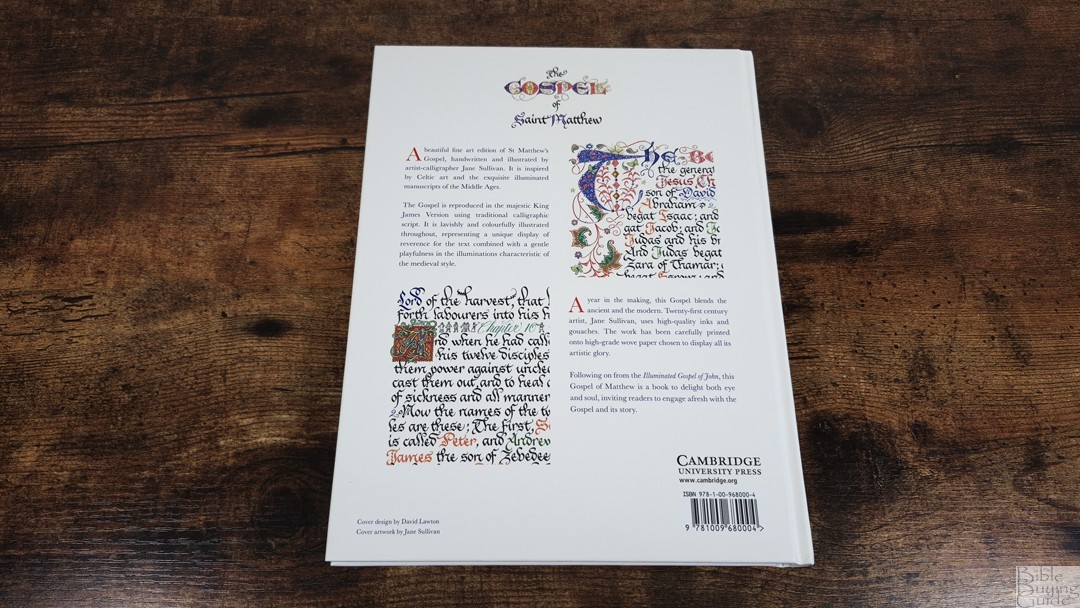 The
GOSPEL
of
Saint Matthew
A beautiful fine art edition of St Matthew's
Gospel, handwritten and illustrated by
artist-calligrapher Jane Sullivan. It is inspired
by Celtic art and the exquisite illuminated
manuscripts of the Middle Ages.
The Gospel is reproduced in the majestic King
James Version using traditional calligraphic
script. It is lavishly and colourfully illustrated
throughout, representing a unique display of
reverence for the text combined with a gentle
playfulness in the illuminations characteristic of
the medieval style.
The B
the general
Jesus Ch
son of David
Abraham
begat Isaac; and
gat Jacob; and Ja
Judas and his br
And Judas begat
Zara of Thamar;
begat Esrom; and
Lord of the harvest, that h
forth labourers into his h
Chapter 10
And when he had calle
his twelve disciples
them power against unclea
cast them out, and to heal a
of sickness and all manner
2 Now the names of the tw
les are these; The first, Si
is called Peter, and Andrew
James the son of Zebedee
A year in the making, this Gospel blends the
ancient and the modern. Twenty-first century
artist, Jane Sullivan, uses high-quality inks and
gouaches. The work has been carefully printed
onto high-grade wove paper chosen to display all its
artistic glory.
Following on from the Illuminated Gospel of John, this
Gospel of Matthew is a book to delight both eye
and soul, inviting readers to engage afresh with the
Gospel and its story.
CAMBRIDGE
UNIVERSITY PRESS
www.cambridge.org
ISBN 978-1-00-968000-4
9 781009 680004 >
Cover design by David Lawton
Cover artwork by Jane Sullivan
Bible
Buying
Guide